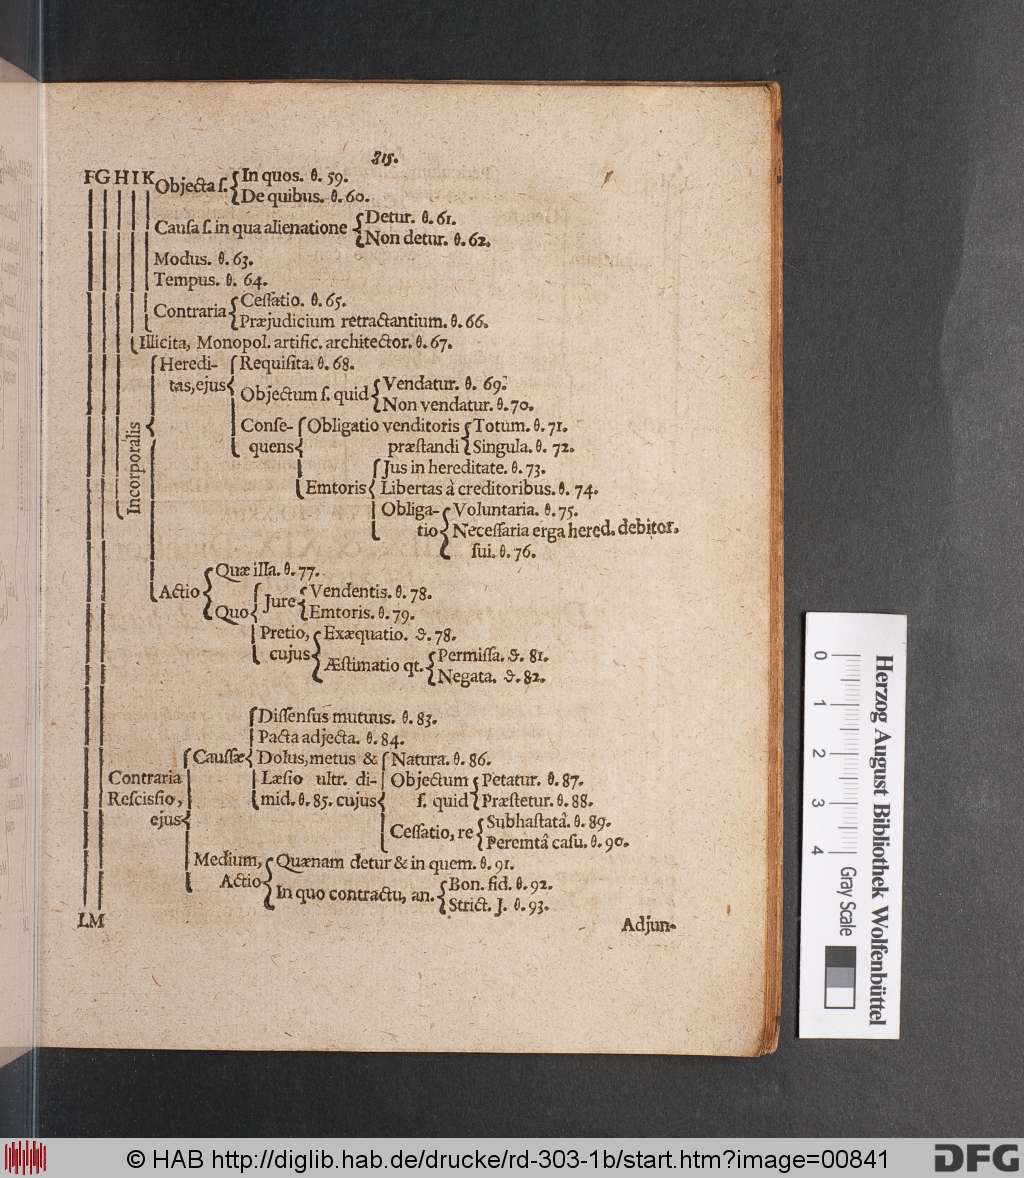 815.
FG H I K Objecta ſ. In quos. θ. 59.
De quibus. θ. 60.
Cauſa ſ. in qua alienatione Detur. θ. 61.
Non detur. θ. 62.
Modus. θ. 63.
Tempus. θ. 64.
Contraria Ceſſatio. θ. 65.
Præjudicium retractantium. θ. 66.
Illicita, Monopol. artific. architector. θ. 67.
Incorporalis
Heredi- Requiſita. θ. 68.
tas, ejus Objectum ſ. quid Vendatur. θ. 69.
Non vendatur. θ. 70.
Conſe- Obligatio venditoris Totum. θ. 71.
quens præſtandi Singula. θ. 72.
Jus in hereditate. θ. 73.
Emtoris Libertas à creditoribus. θ. 74.
Obliga- Voluntaria. θ. 75.
tio Neceſſaria erga hered. debitor.
ſui. θ. 76.
Actio Quæ illa. θ. 77.
Quo Jure Vendentis. θ. 78.
Emtoris. θ. 79.
Pretio, Exæquatio. ϑ. 78.
cujus Æſtimatio qt. Permiſſa. ϑ. 81.
Negata. ϑ. 82.
Diſſenſus mutuus. θ. 83.
Pacta adjecta. θ. 84.
Cauſſæ Dolus, metus & Natura. θ. 86.
Contraria Læſio ultr. di- Objectum Petatur. θ. 87.
Reſciſſio, mid. θ. 85. cujus ſ. quid Præſtetur. θ. 88.
ejus Ceſſatio, re Subhaſtatâ. θ. 89.
Peremtâ caſu. θ. 90.
Medium, Quænam detur & in quem. θ. 91.
Actio In quo contractu, an. Bon. fid. θ. 92.
Strict. J. θ. 93.
LM
Adjun-
0 1 2 3 4
Gray Scale
Herzog August Bibliothek Wolfenbüttel
© HAB http://diglib.hab.de/drucke/rd-303-1b/start.htm?image=00841
DFG